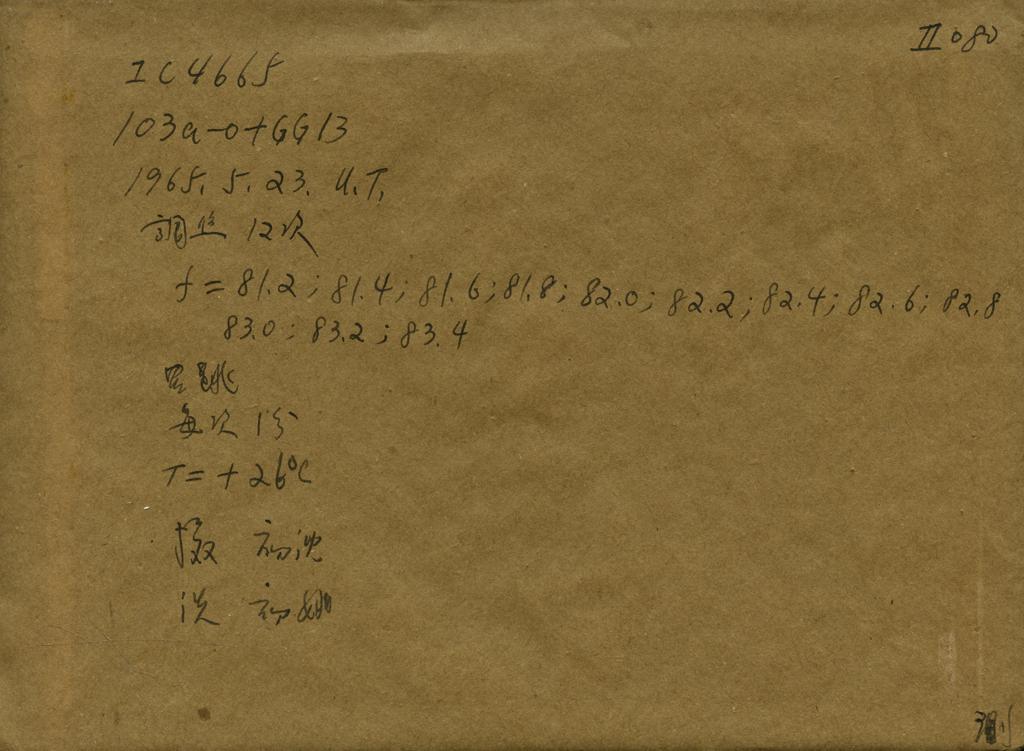 II080
IC4665
103a-0+GG13
1965. 5. 23. U.T.
調焦 12次
f = 81.2; 81.4; 81.6; 81.8; 82.0; 82.2; 82.4; 82.6; 82.8
83.0; 83.2; 83.4
每次 1分
T= +26°C
摄 初沈
洗 初姚
测